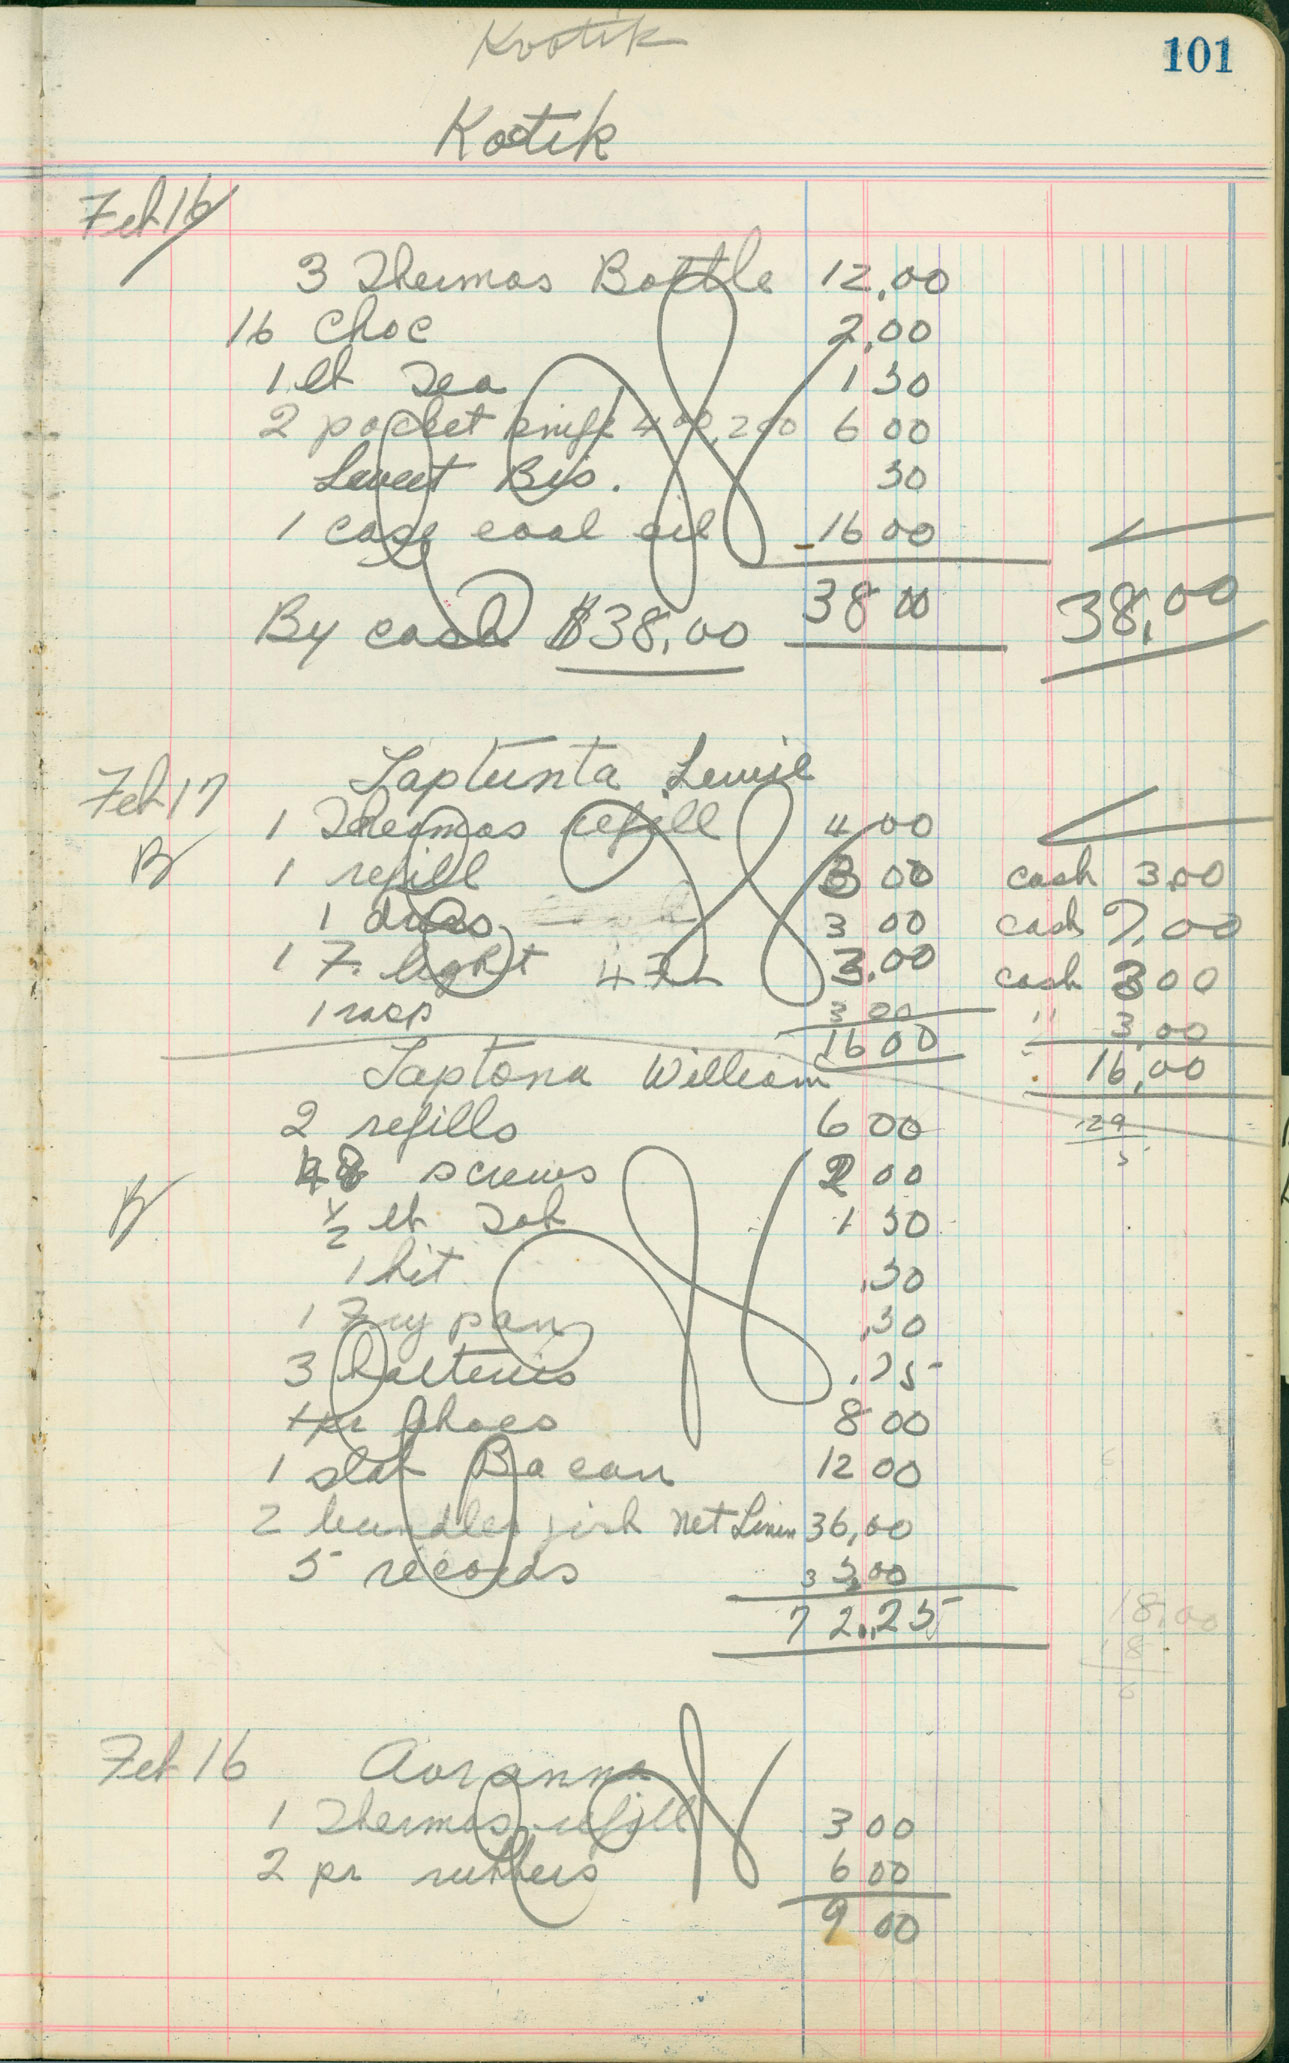 Kootik
101
Kootik
Feb 16
3 Thermos Bottle 12.00
16 Choc 2.00
1 lb Tea 1 50
2 pocket knife 4 00, 2 00 6 00
Sweet Bis. 50
1 case coal oil 16 00
38 00 38.00
By cash $38.00
Feb 17 Taptunta
1 Thermos refill 4 00
B 1 refill 3 00 cash 3.00
1 dress 3 00 cash 7.00
1 F. light 3.00 cash 3 00
1 rasp 3 00 " 3.00
16 00 16.00
Taptona William
2 refills 6 00 29
5
screws 2 00
B 1/2 lb Tob 1 50
.50
1 Fry pan .50
3 batteries .75
1 pr shoes 8 00
1 slab Bacon 12 00
2 bundles fish Net Linen 36.00
5 records 5.00
72.25
18.00
18
6
Feb 16
1 Thermos refill 3 00
2 pr rubbers 6 00
9 00